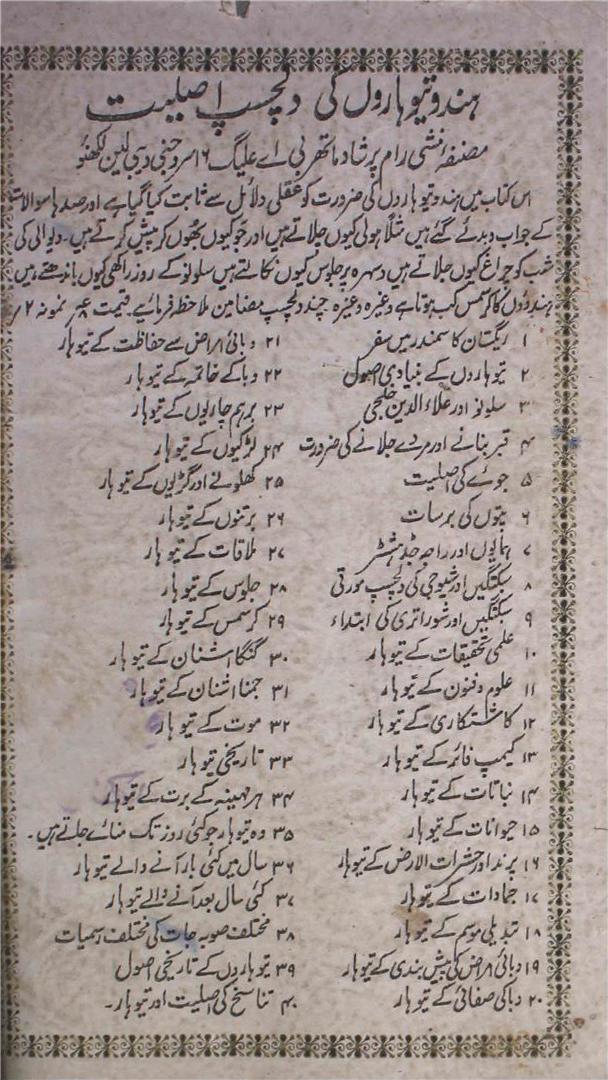 ہندو تیوہاروں کی دلچسپ اصلیت
مصنفہ منشی رام پرشاد ماتھر بی اے علیگ ۱۶ سروجنی دیبی لین لکھنؤ
اس کتاب میں ہندو تیوہاروں کی ضرورت کو عقلی دلائل سے ثابت کیا گیا ہے اور صدہا سوالات
کے جواب دیدئے گئے ہیں مثلاً ہولی کیوں جلاتے ہیں اور جو کیوں بھُون کر پیش کرتے ہیں۔ دیوالی کی
شب کو چراغ کیوں جلاتے ہیں دسہرہ پر جلوس کیوں نکالتے ہیں سلونو کے روز راکھی کیوں باندھتے ہیں
ہندوؤں کا کرسمس کب ہوتا ہے وغیرہ وغیرہ چند دلچسپ مضامین ملاحظہ فرمائیے۔ قیمت نمونہ ۲
۱ ریگستان کا سمندر میں سفر
۲ تیوہاروں کے بنیادی اصول
۳ سلونو اور علاءالدین خلجی
۴ قبر بنانے اور مردے جلانے کی ضرورت
۵ جوئے کی اصلیت
۶ بتوں کی برسات
۷ ہمایوں اور راجہ جدہشٹر
۸ سبکتگیں اور شیوجی کی دلچسپ مورتی
۹ سبکتگیں اور شوراتری کی ابتداء
۱۰ علمی تحقیقات کے تیوہار
۱۱ علوم و فنون کے تیوہار
۱۲ کاشتکاری کے تیوہار
۱۳ کیمپ فائر کے تیوہار
۱۴ نباتات کے تیوہار
۱۵ حیوانات کے تیوہار
۱۶ پرند اور حشرات الارض کے تیوہار
۱۷ جمادات کے تیوہار
۱۸ تبدیلی موسم کے تیوہار
۱۹ وبائی امراض کی پیش بندی کے تیوہار
۲۰ وبا کی صفائی کے تیوہار
۲۱ وبائی امراض سے حفاظت کے تیوہار
۲۲ وبا کے خاتمہ کے تیوہار
۲۳ برہمچاریوں کے تیوہار
۲۴ لڑکیوں کے تیوہار
۲۵ کھلونے اور گڑیوں کے تیوہار
۲۶ برتنوں کے تیوہار
۲۷ ملاقات کے تیوہار
۲۸ جلوس کے تیوہار
۲۹ کرسمس کے تیوہار
۳۰ گنگا اشنان کے تیوہار
۳۱ جمنا اشنان کے تیوہار
۳۲ موت کے تیوہار
۳۳ تاریخی تیوہار
۳۴ ہر مہینہ کے برت کے تیوہار
۳۵ وہ تیوہار جو کئی روز تک منائے جاتے ہیں۔
۳۶ سال میں کئی بار آنے والے تیوہار
۳۷ کئی سال بعد آنے والے تیوہار
۳۸ مختلف صوبہ جات کی مختلف رسمیات
۳۹ تیوہاروں کے تاریخی اصول
۴۰ تناسخ کی اصلیت اور تیوہار۔